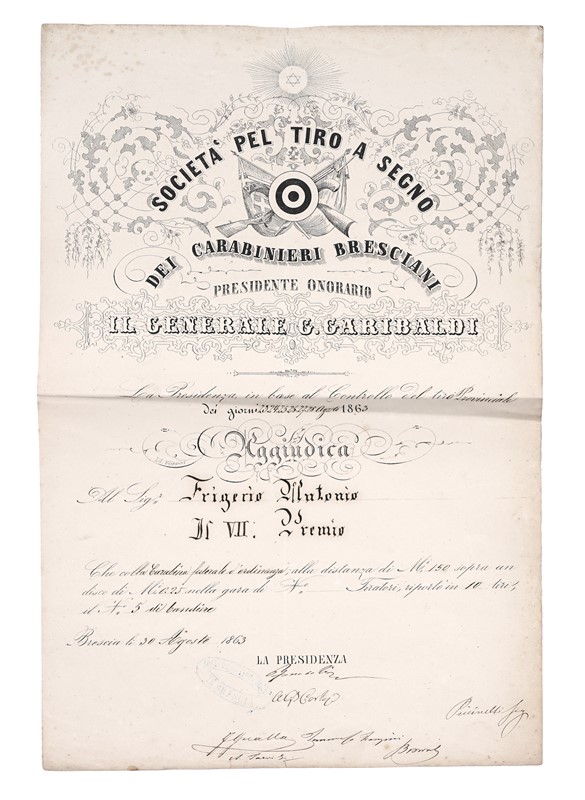 SOCIETÀ PEL TIRO A SEGNO
DEI CARABINIERI BRESCIANI
PRESIDENTE ONORARIO
IL GENERALE G. GARIBALDI
La Presidenza in base al Controllo del tiro Provinciale
dei giorni Agosto 1863
Aggiudica
Al Sigr. Frigerio Antonio
Il VII. Premio
Che colla Carabina federale d'ordinanza, alla distanza di M. 150 sopra un
disco di M. 0.25 nella gara di N. Tiratori, riportò in 10 tiri,
il N. 5 di bandiere
Brescia li 30 Agosto 1863
LA PRESIDENZA